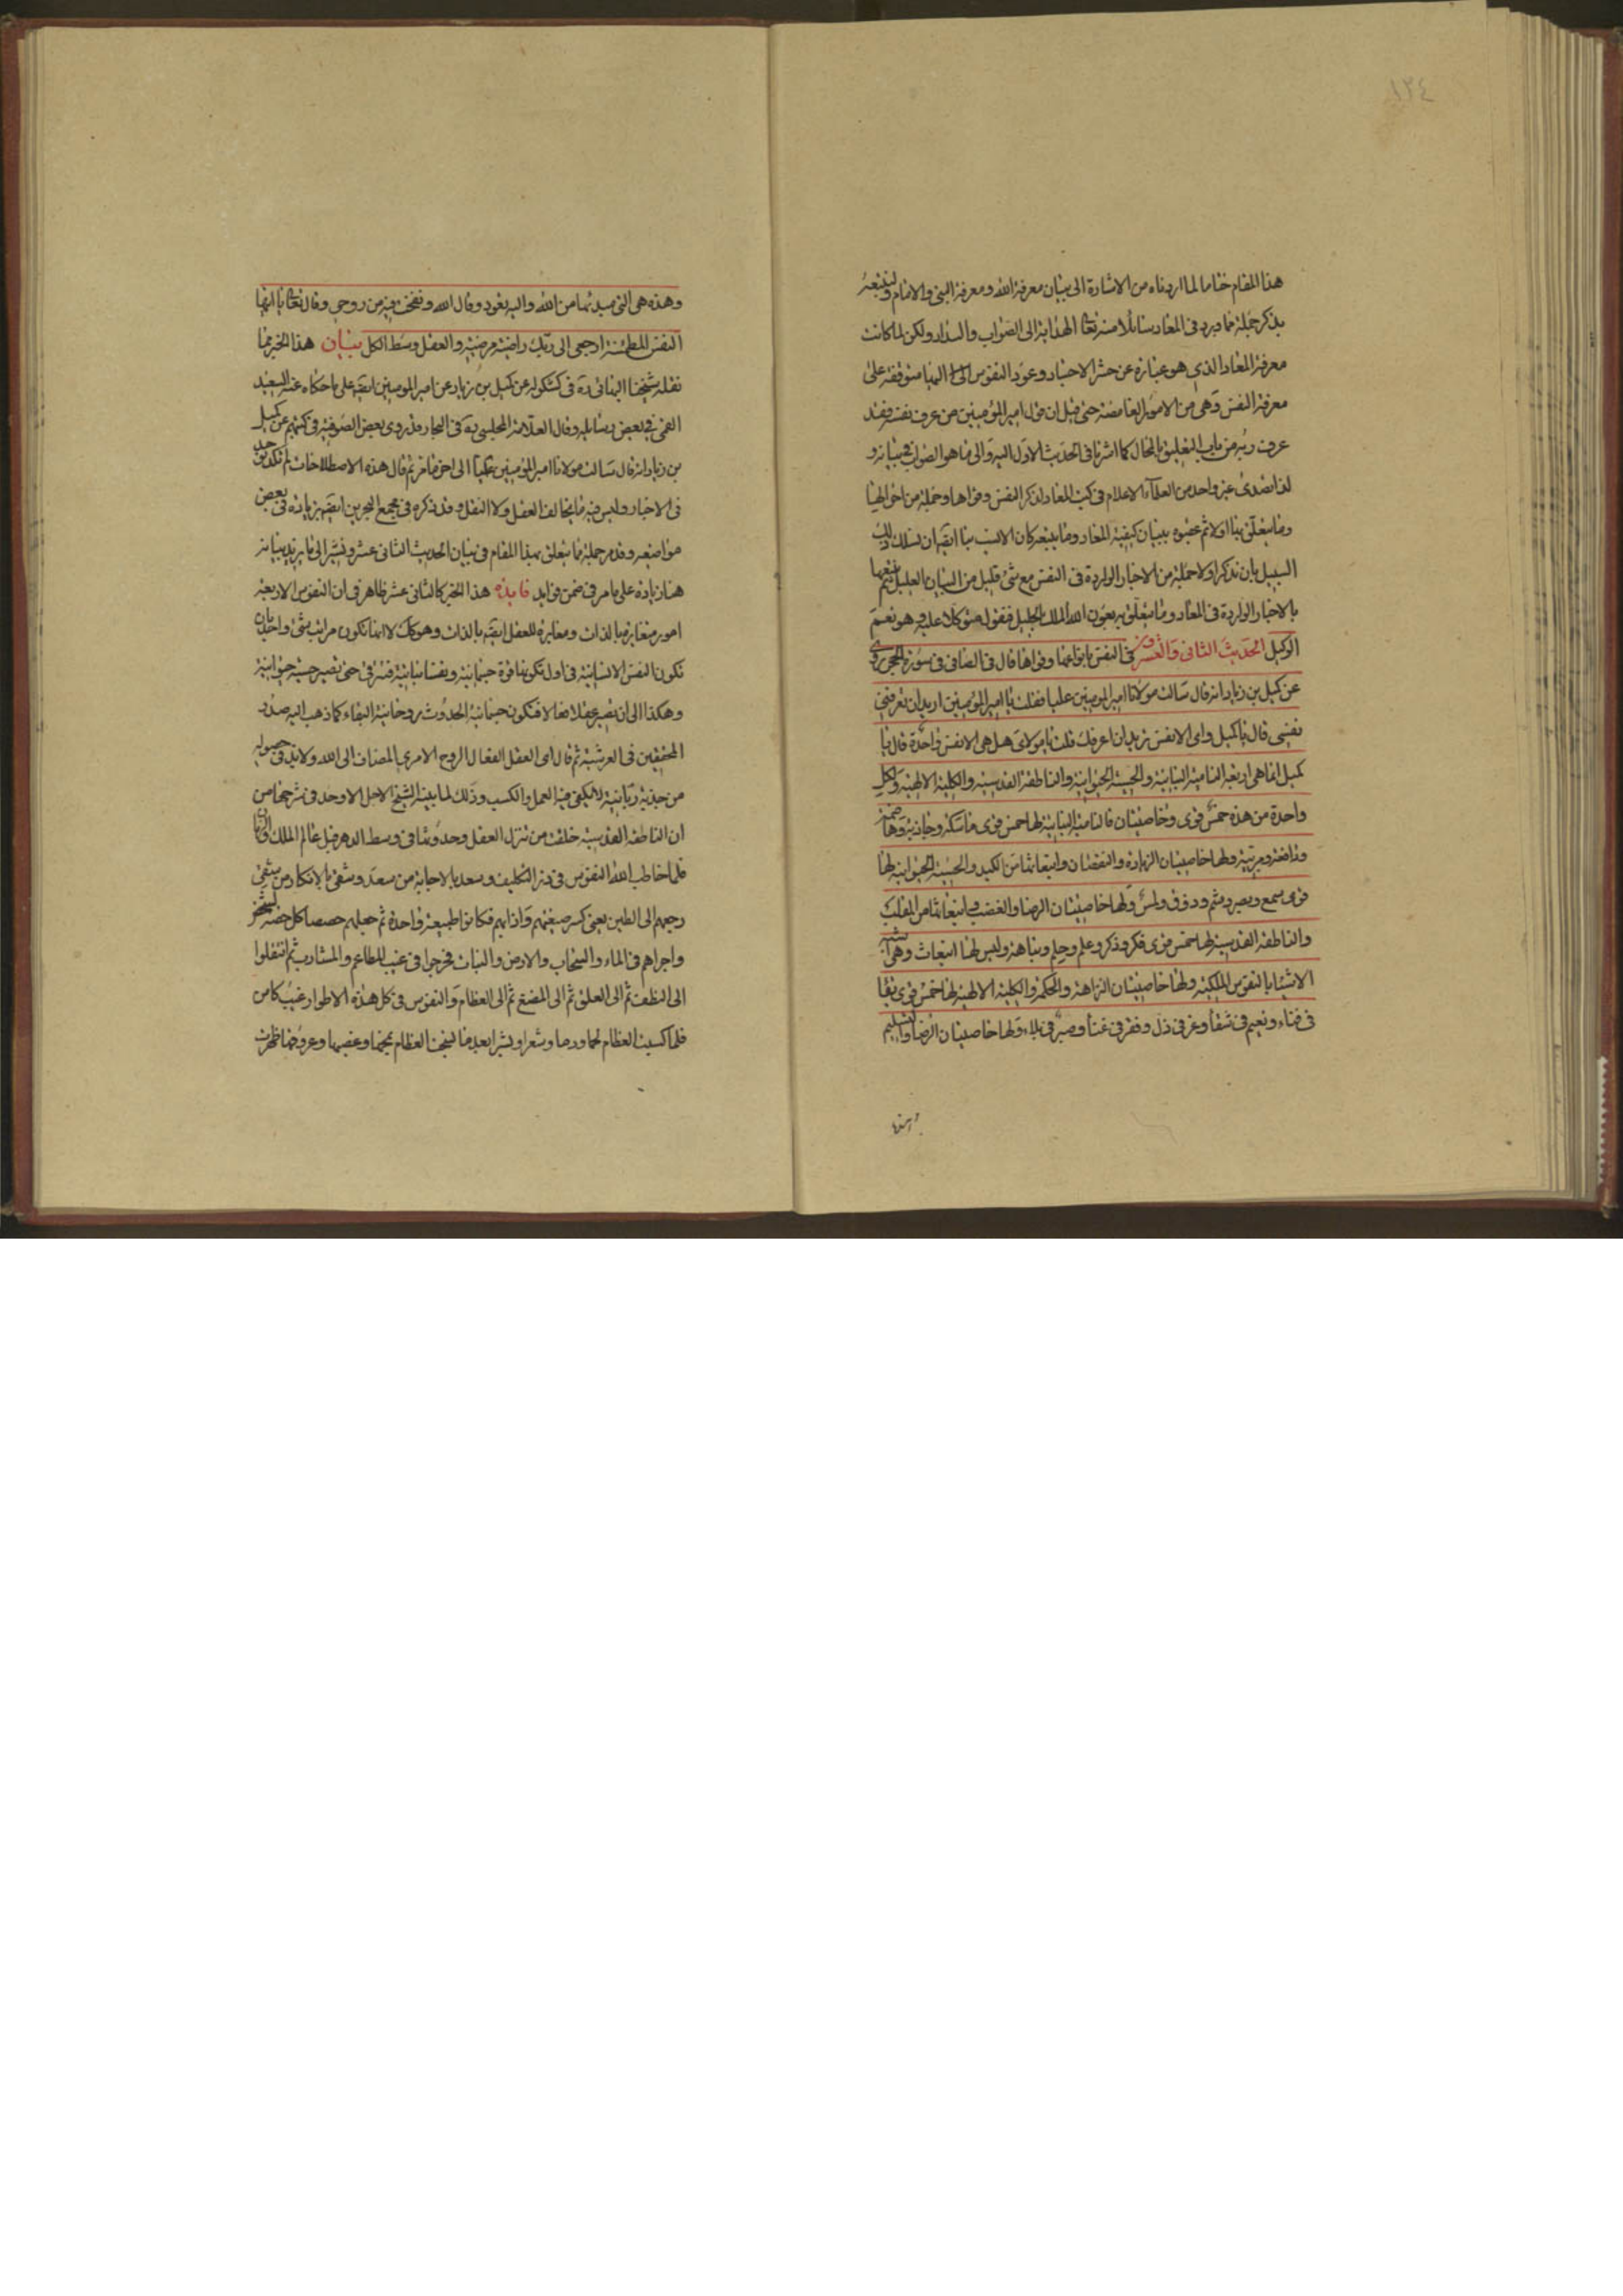 ١٣٤
هذا المقام ختاما لما اردناه من الاشارة الى بيان معرفة الله ومعرفة النبى والامام ولنتبعه
بذكر جملة مما ورد فى المعاد سائلا منه تعالى الهداية الى الصواب والسداد ولكن لما كانت
معرفة المعاد الذى هو عبارة عن حشر الاجساد وعود النفوس اليها متوقفة على
معرفة النفس وهى من الامور الغامضة حتى قيل ان قول امير المؤمنين من عرف نفسه فقد
عرف ربه من باب التعليق بالمحال كما اشرنا فى الحديث الاول اليه والى ما هو الصواب فى بيانه و
لذا تصدى غير واحد من العلماء الاعلام فى كتب المعاد لذكر النفس وقواها وجملة من احوالها
وما يتعلق بها اولا ثم عقبوه ببيان كيفية المعاد وما يتبعه كان الانسب بنا ايضا ان نسلك ذلك
السبيل بان نذكر اولا جملة من الاخبار الواردة فى النفس مع شئ قليل من البيان العليل ثم نتبعها
بالاخبار الواردة فى المعاد وما يتعلق به بعون الله الملك الجليل فنقول متوكلا عليه وهو نعم
الوكيل الحديث الثانى والعشرون فى النفس بانواعها وقواها قال فى الصافى فى سورة الحجر روى
عن كميل بن زياد انه قال سالت مولانا امير المومنين عليا فقلت يا امير المؤمنين اريد ان تعرفنى
نفسى قال يا كميل واى الانفس تريد ان اعرفك قلت يا مولاى هل هى الا نفس واحدة قال يا
كميل انما هى اربعة النامية النباتية والحسية الحيوانية والناطقة القدسية والكلية الالهية ولكل
واحدة من هذه خمس قوى وخاصيتان فالنامية النباتية لها خمس قوى ماسكة وجاذبة وهاضمة
ودافعة ومربية ولها خاصيتان الزيادة والنقصان وانبعاثها من الكبد والحسية الحيوانية لها
قوى سمع وبصر وشم وذوق ولمس ولها خاصيتان الرضا والغضب وانبعاثها من القلب
والناطقة القدسية لها خمس قوى فكر وذكر وعلم وحلم ونباهة وليس لها انبعاث وهى اشبه
الاشياء بالنفوس الملكية ولها خاصيتان النزاهة والحكمة والكلية الالهية لها خمس قوى بقا
فى فناء ونعيم فى شقا وعز فى ذل وفقر فى غنا وصبر فى بلاء ولها خاصيتان الرضا والتسليم
وهذه
وهذه هى التى مبدئها من الله واليه تعود وقال الله ونفخت فيه من روحى وقال تعالى يا ايتها
النفس المطمئنة ارجعى الى ربك راضية مرضية والعقل وسط الكل بيان هذا الخبر مما
نقله شيخنا البهائى ره فى كشكوله عن كميل بن زياد عن امير المومنين ايضا على ما حكاه عنه السعيد
القمى فى بعض رسائله وقال العلامة المجلسى ره فى البحار قد روى بعض الصوفية فى كتبهم عن كميل
بن زياد انه قال سالت مولانا امير المؤمنين عليا الى اخر ما مر ثم قال هذه الاصطلاحات لم تكد توجد
فى الاخبار وليس فيه ما يخالف العقل ولا النقل وقد ذكره فى مجمع البحرين ايضا بزيادة فى بعض
مواضعه وقد مر جملة مما يتعلق بهذا المقام فى بيان الحديث الثانى عشر ونشير الى ما نريد بيانه
هنا زيادة على ما مر فى ضمن فوايد فايدة هذا الخبر كالثانى عشر ظاهر فى ان النفوس الاربعة
امور متغايرة بالذات ومغايرة للعقل ايضا بالذات وهو كك لا انها تكون مراتب شئ واحد بان
تكون النفس الانسانية فى اول تكونها قوة جسمانية ونفسا نباتية فتترقى حتى تصير حسية حيوانية
وهكذا الى ان تصير عقلا فعالا فتكون جسمانية الحدوث روحانية البقاء كما ذهب اليه صدر
المحققين فى العرشية ثم قال اى العقل الفعال الروح الامرى المضاف الى الله ولا بد فى حصوله
من جذبة ربانية لا يكفى فيه العمل والكسب وذلك لما بينه الشيخ الاجل الاوحد فى شرحها من
ان الناطقة القدسية خلقت من تنزل العقل وحدوثها فى وسط الدهر قبل عالم الملك والزمان
فلما خاطب الله النفوس فى ذر التكليف وسعد بالاجابة من سعد وشقى بالانكار من شقى
رجعهم الى الطين يعنى كسر صيغتهم واذابهم فكانوا طبيعة واحدة ثم جعلهم حصصا كل حصة لشخص
واجراهم فى الماء والسحاب والارض والنبات فخرجوا فى غيب المطاعم والمشارب ثم انتقلوا
الى النطف ثم الى العلق ثم الى المضغ ثم الى العظام والنفوس فى كل هذه الاطوار غيب كامن
فلما كسيت العظام لحما ودما وشعرا وبشرا بعد ما نسجت العظام بمخها وعصبها وعروقها ظهرت